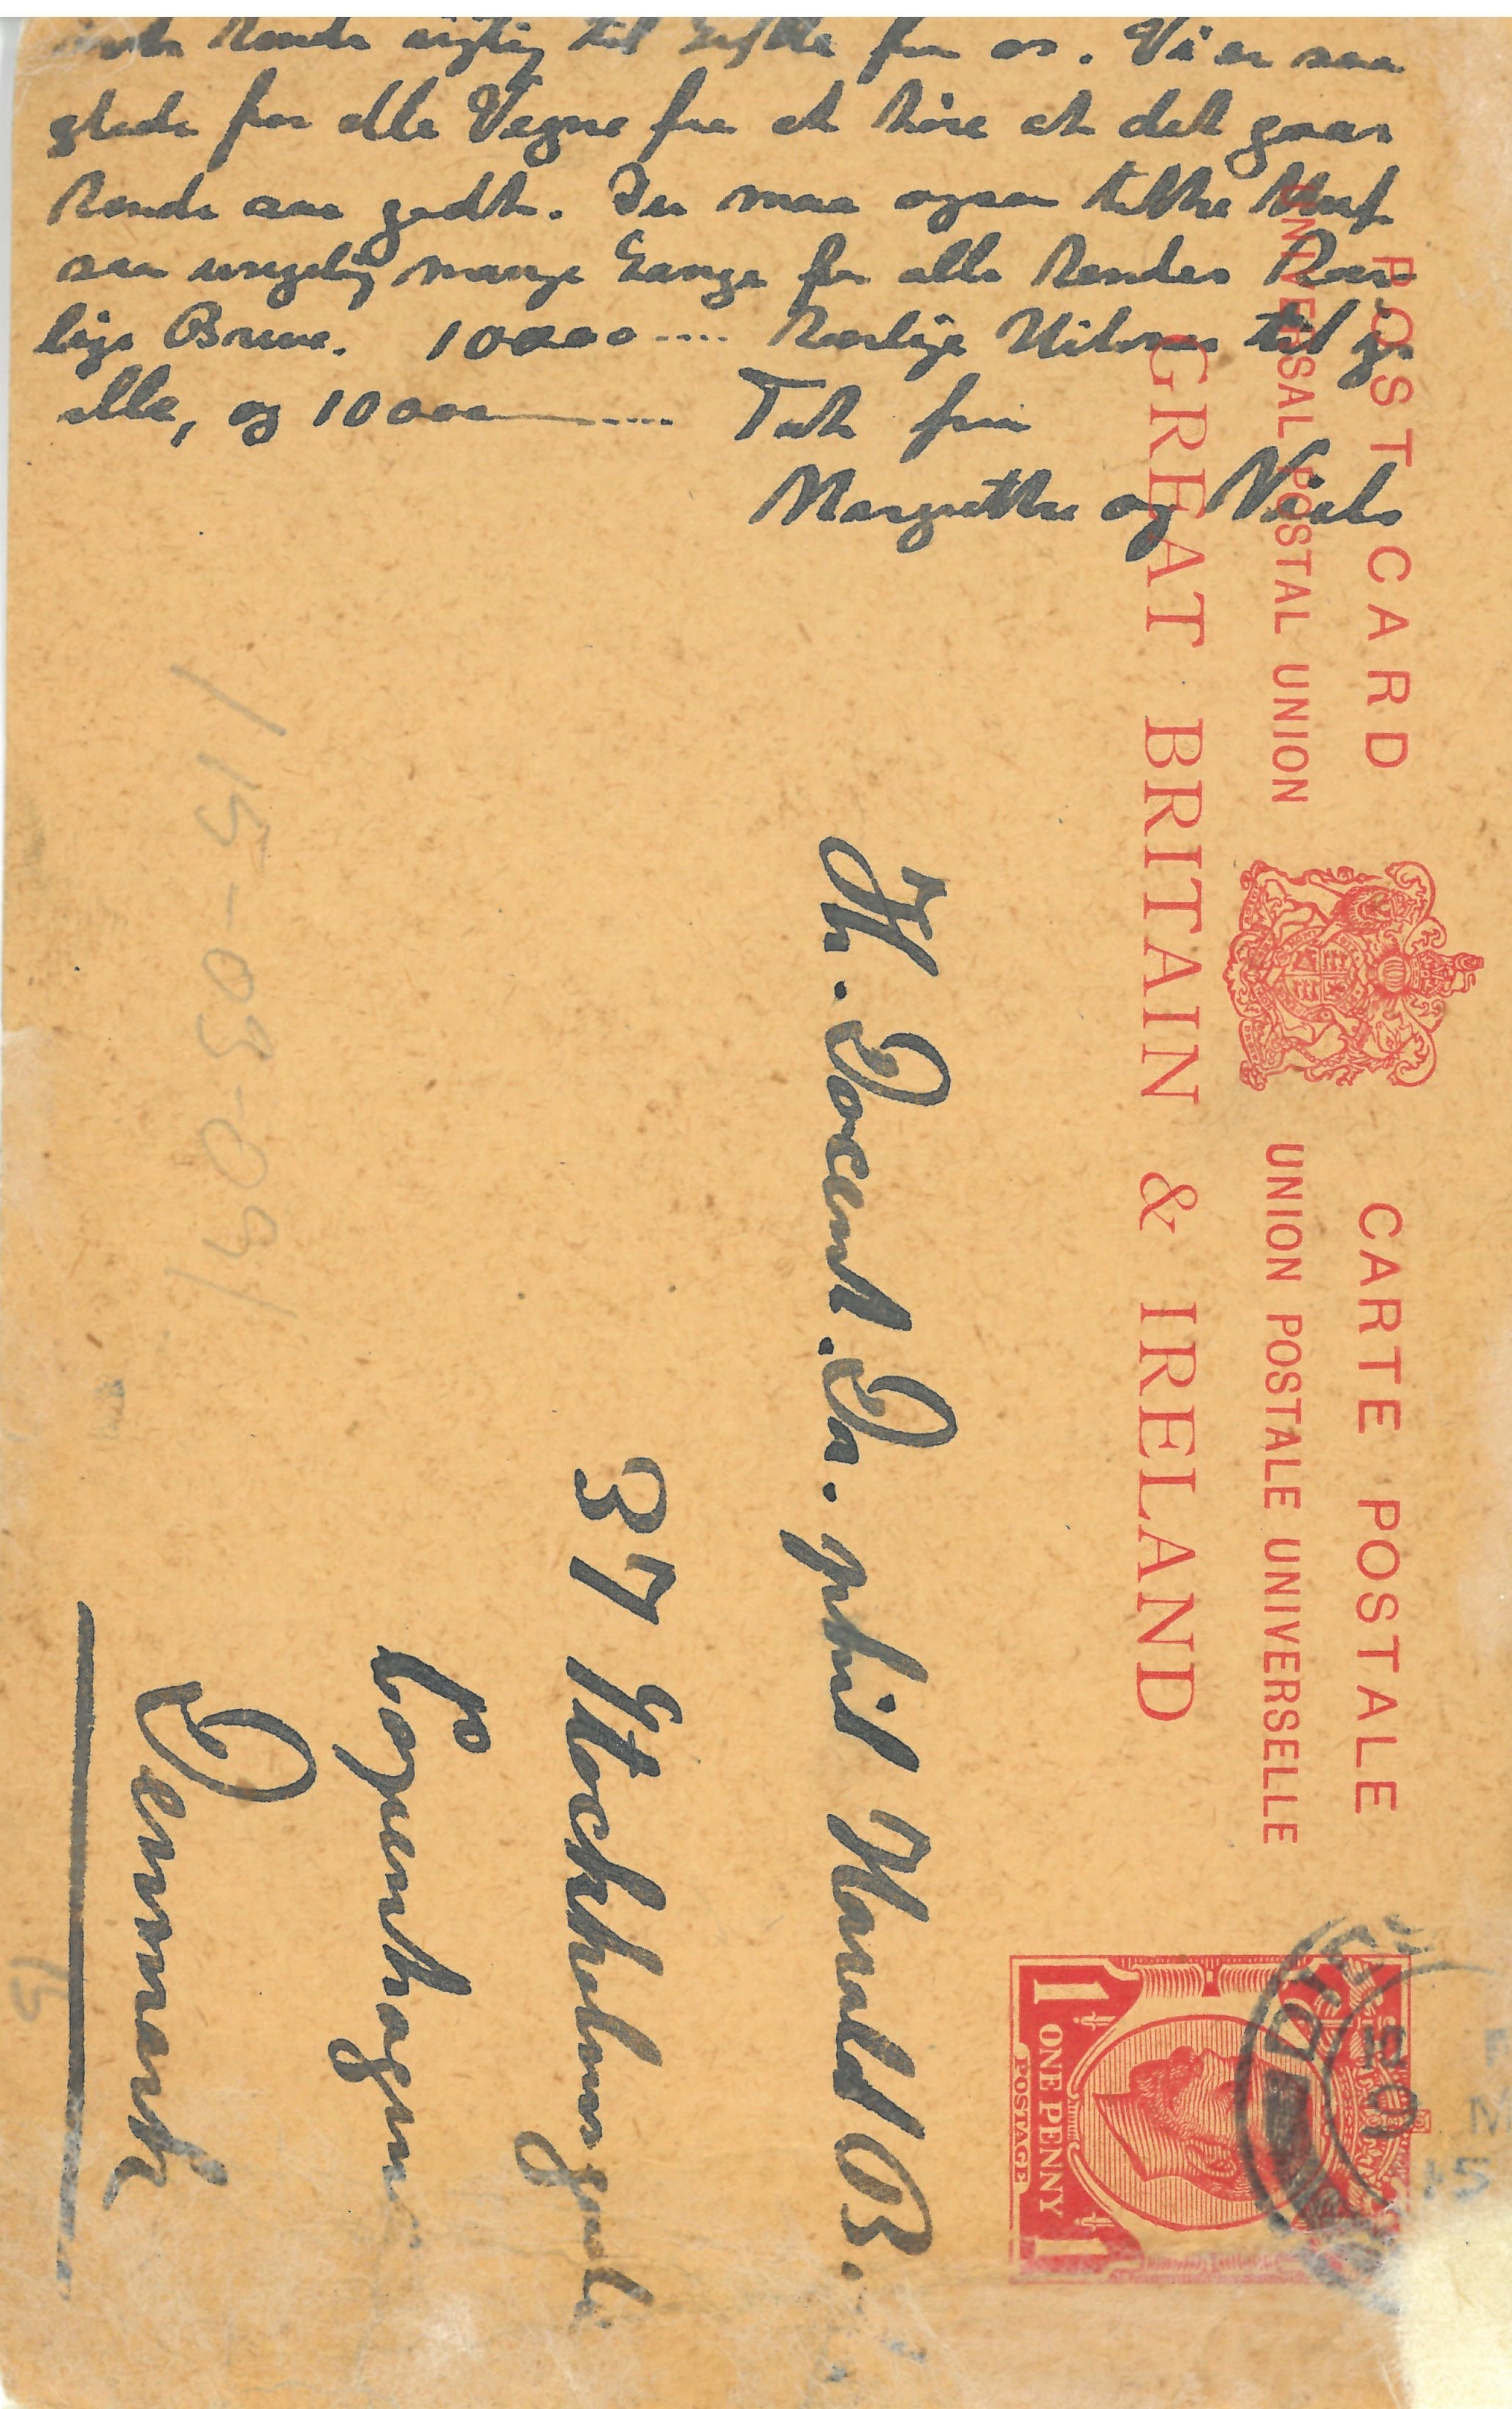 hende rigtig til Lykke fra os. Vi er saa
glade for alle Vegne fra at höre at det gaar
hende saa godt. Du maa ogsaa takke
saa usigelig mange Gange for alle hendes Kær-
lige Breve. 10000.... kærlige Hilsner til jer
alle, og 10000 .... Tak fra
Margrethe og Niels
POST CARD CARTE POSTALE
UNIVERSAL POSTAL UNION UNION POSTALE UNIVERSELLE
GREAT BRITAIN & IRELAND
1 ONE PENNY 1
POSTAGE
15
Hr. Docent. Dr. phil Harald B.
37 Stockholmsgade
Copenhagen
Denmark
115-03-09/
15